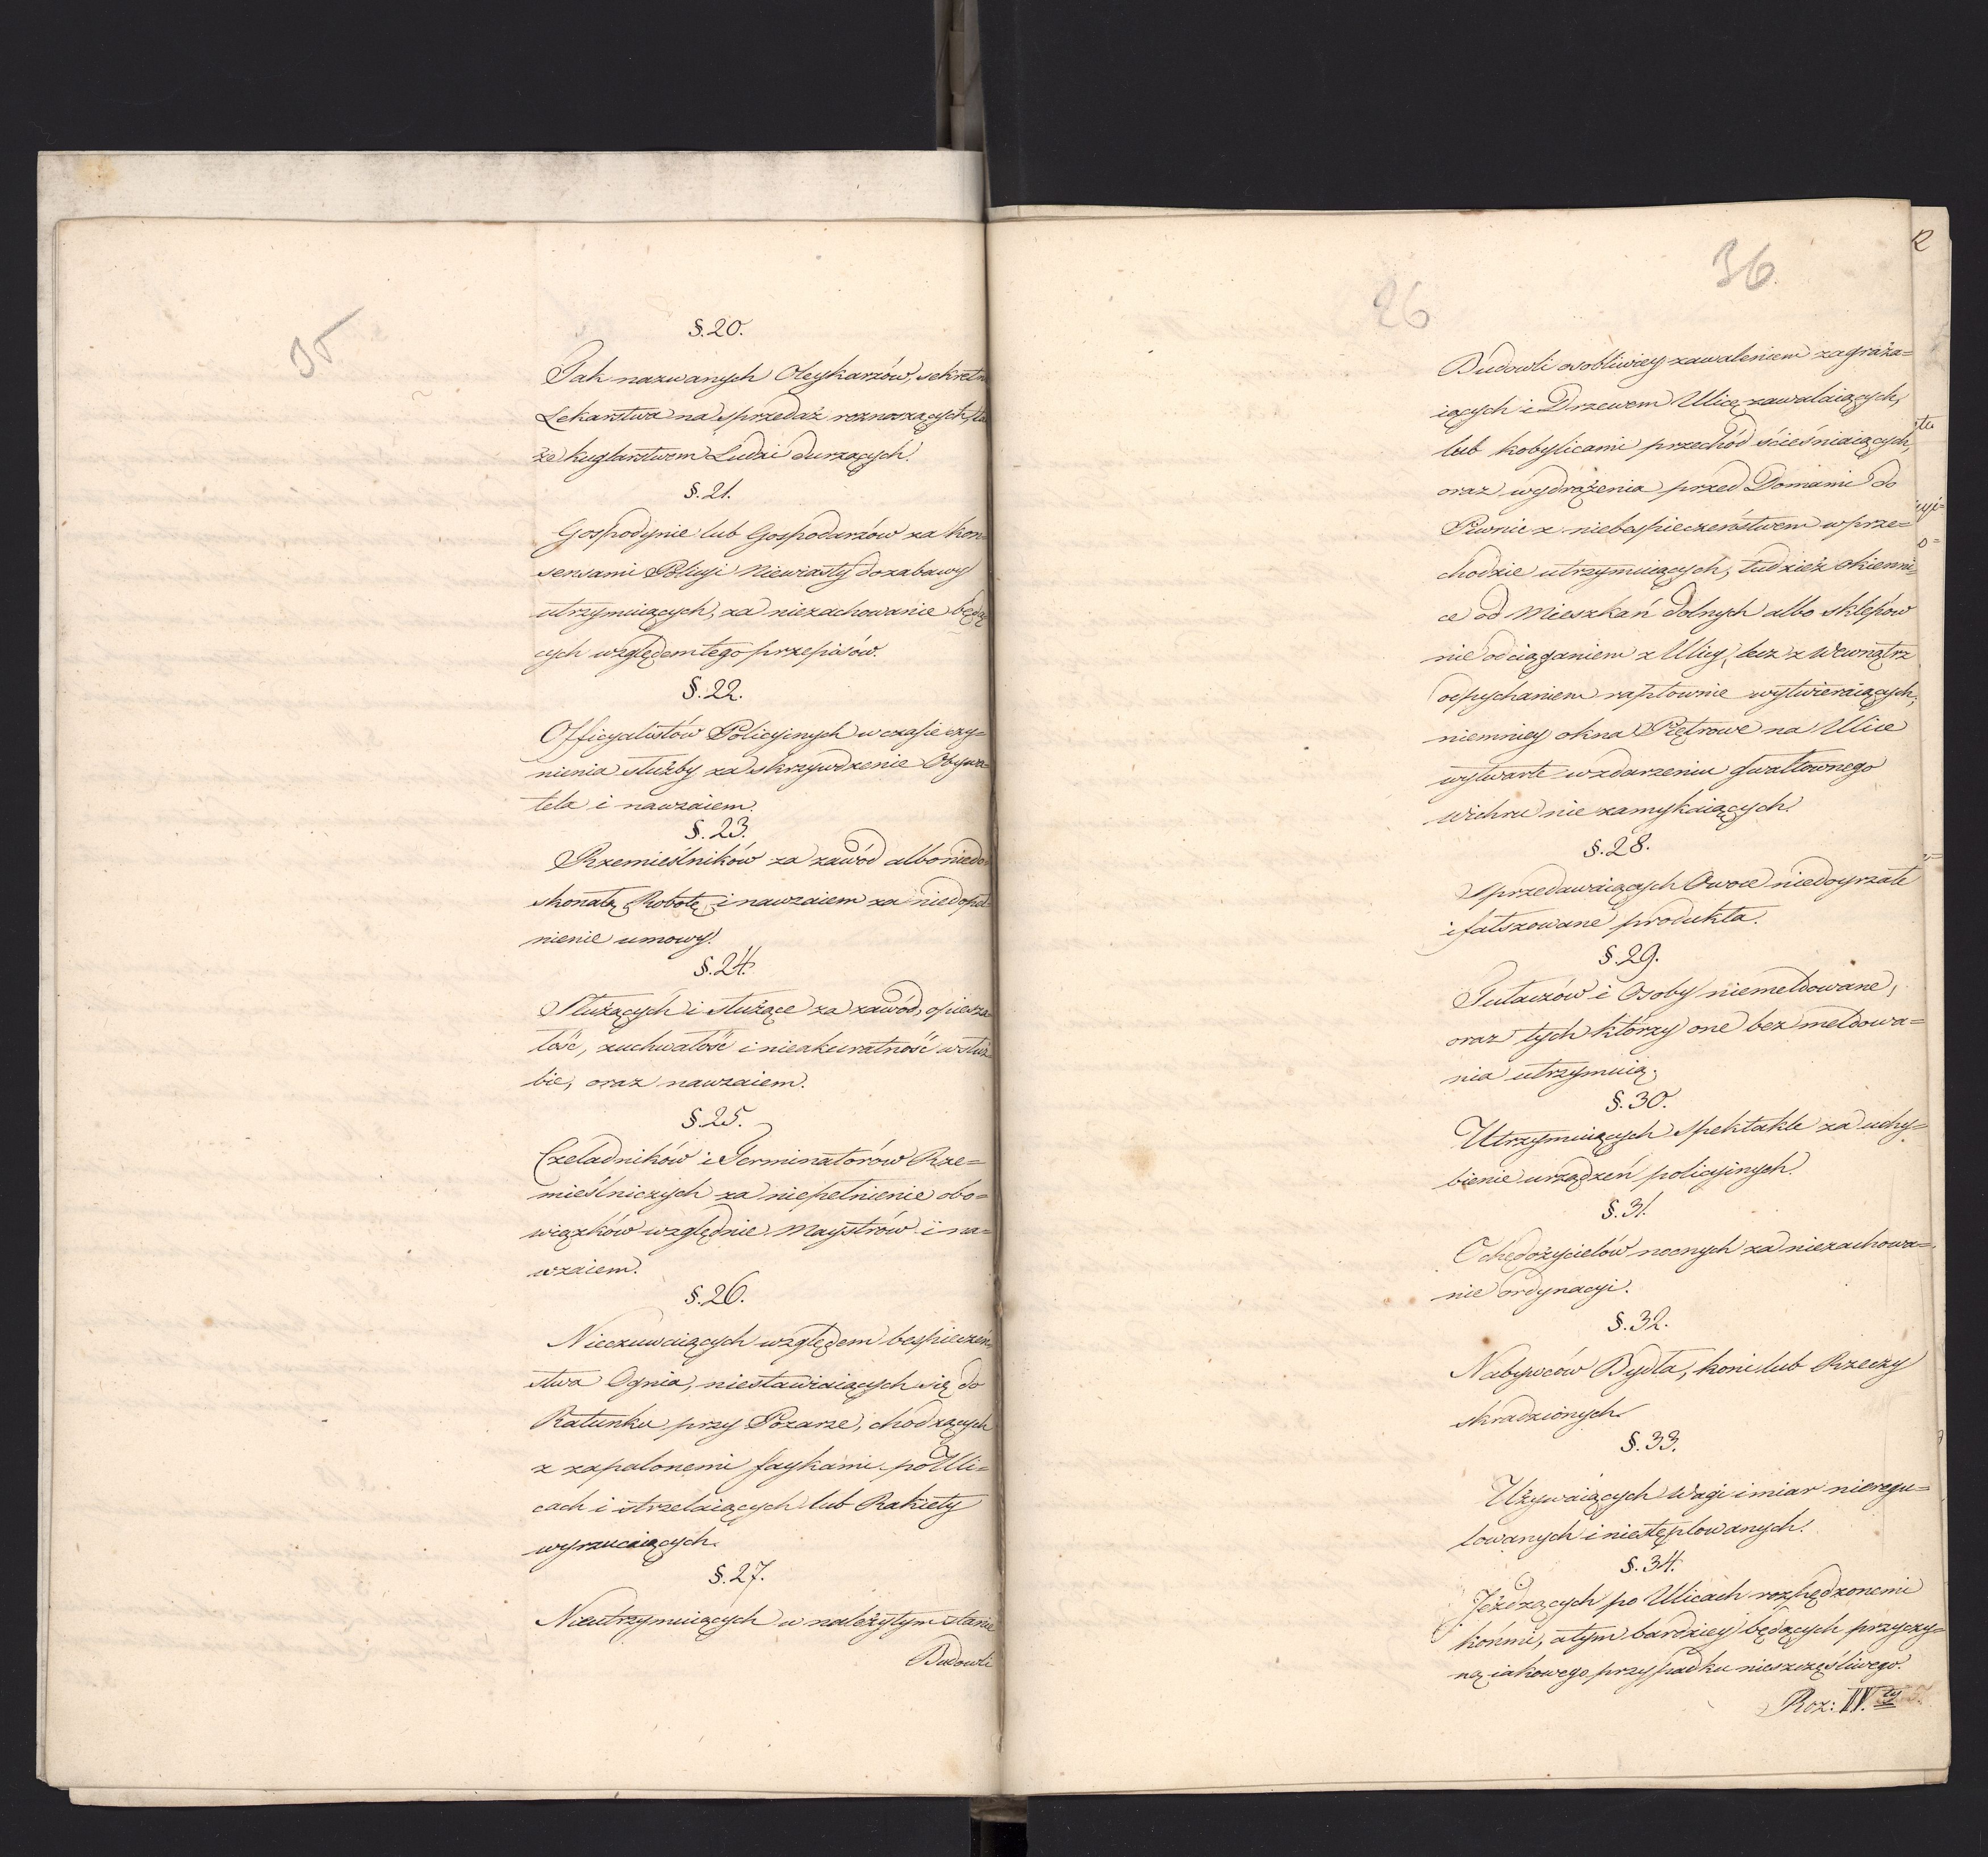 35
§. 20.
Tak nazwanych Oleykarzów, sekretne
Lekarstwa na sprzedaż roznoszących,
że kuglarstwem Ludzi durzących.
§. 21.
Gospodynie lub Gospodarzów za kon=
sensami Policyi Niewiasty do zabawy
utrzymuiących, za niezachowanie będą
cych względem tego przepisów.
§. 22.
Officyalistów Policyjnych w czasie czy=
nienia służby za skrzywdzenie Obywa=
tela i nawzaiem.
§. 23.
Rzemieślników za zawód albo niedo=
skonałą Robotę, i nawzaiem za niedopeł=
nienie umowy.
§. 24.
Służących i służące za zawód, opiesza
łość, zuchwałość i nieakuratność w służ
bie, oraz nawzaiem.
§. 25.
Czeladników i Terminatorów Rze=
mieślniczych za niepełnienie obo=
wiązków względnie Maystrów i na=
wzaiem.
§. 26.
Nieczuwaiących względem bespieczeń
stwa Ognia, niestawiaiących się do
Ratunku przy Pożarze, chodzących
z zapalonemi faykami po Uli=
cach i strzelaiących lub Rakiety
wyrzucaiących.
§. 27.
Nieutrzymuiących w należytym stanie
Budowli
26
36.
Budowli osobliwiey zawaleniem zagraża=
iących i Drzewem Ulicę zawalaiących,
lub kobylicami przechód ścieśniaiących,
oraz wydrożenia przed Domami do
Piwnic z niebespieczeństwem w prze=
chodzie utrzymuiących, tudzież Okienni=
ce od Mieszkań dolnych albo sklepów
nie odciąganiem z Ulicy, lecz z wewnątrz
odpychaniem raptownie wytwieraiących,
niemniey okna Piętrowe na Ulice
wytwarte w zdarzeniu gwałtownego
wichru nie zamykaiących.
§. 28.
Sprzedawaiących Owoce niedoyrzałe
i fałszowane produkta.
§. 29.
Tułaczów i Osoby niemeldowane,
oraz tych którzy one bez meldowa=
nia utrzymuią.
§. 30.
Utrzymuiących spektakle za uchy=
bienie urządzeń policyinych.
§. 31.
Ochędożycielów nocnych za niezachowa=
nie ordynacyi.
§. 32.
Nabywców Bydła, koni lub Rzeczy
skradzionych.
§. 33.
Używaiących wagi i miar nieregu=
lowanych i niestęplowanych.
§. 34.
Jeżdzących po Ulicach rozpędzonemi
końmi, a tym bardziey będących przyczy=
ną iakowego przypadku nieszczęśliwego.
Roz: IV.ty